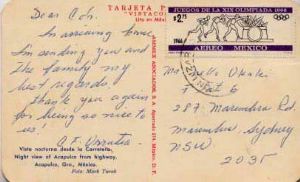 TARJETA P
"VISTACOL
Dear
In arriving home
I'm sending you and
The family my
best regards.
Thank you again
for being so nice to
us.
Vista nocturna desde la Carretera.
Night view of Acapulco from highway.
Acapulco, Gro., México.
Foto: Mark Turok
JUEGOS DE LA XIX OLIMPIADA 1968
$2.75
1966
AEREO MEXICO
287 Maroubra Rd
Maroubra Sydney
NSW
2035